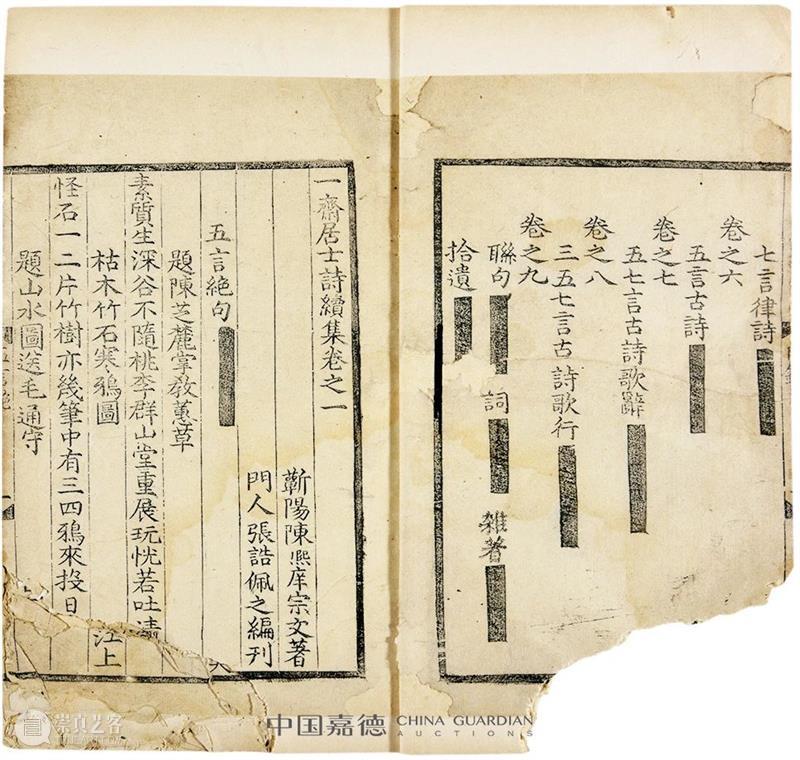 七言律詩
卷之六
五言古詩
卷之七
五七言古詩歌辭
卷之八
三五七言古詩歌行
卷之九
聯句 詞 雜著
拾遺
一齋居士詩續集卷之一
蘄陽陳熙庠宗文著
門人張誥佩之編刊
五言絕句
題陳芝麓掌教蕙草
素質生深谷不隨桃李群山堂重展玩恍若吐清
枯木竹石寒鴉圖
怪石一二片竹樹亦幾筆中有三四鴉來投日
江上
題山水圖送毛通守
中国嘉德 CHINA GUARDIAN
AUCTIONS
崇真艺客